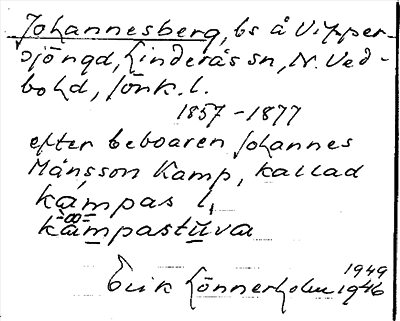 Johannesberg, bs å Vipper-
sjöngd, Linderås sn, N. Ved-
bohd, Jönk. l.
1857-1877
efter beboaren Johannes
Månsson Kamp, kallad
kampas l.
kampastuva
1949
Erik Lönnerholm 1946